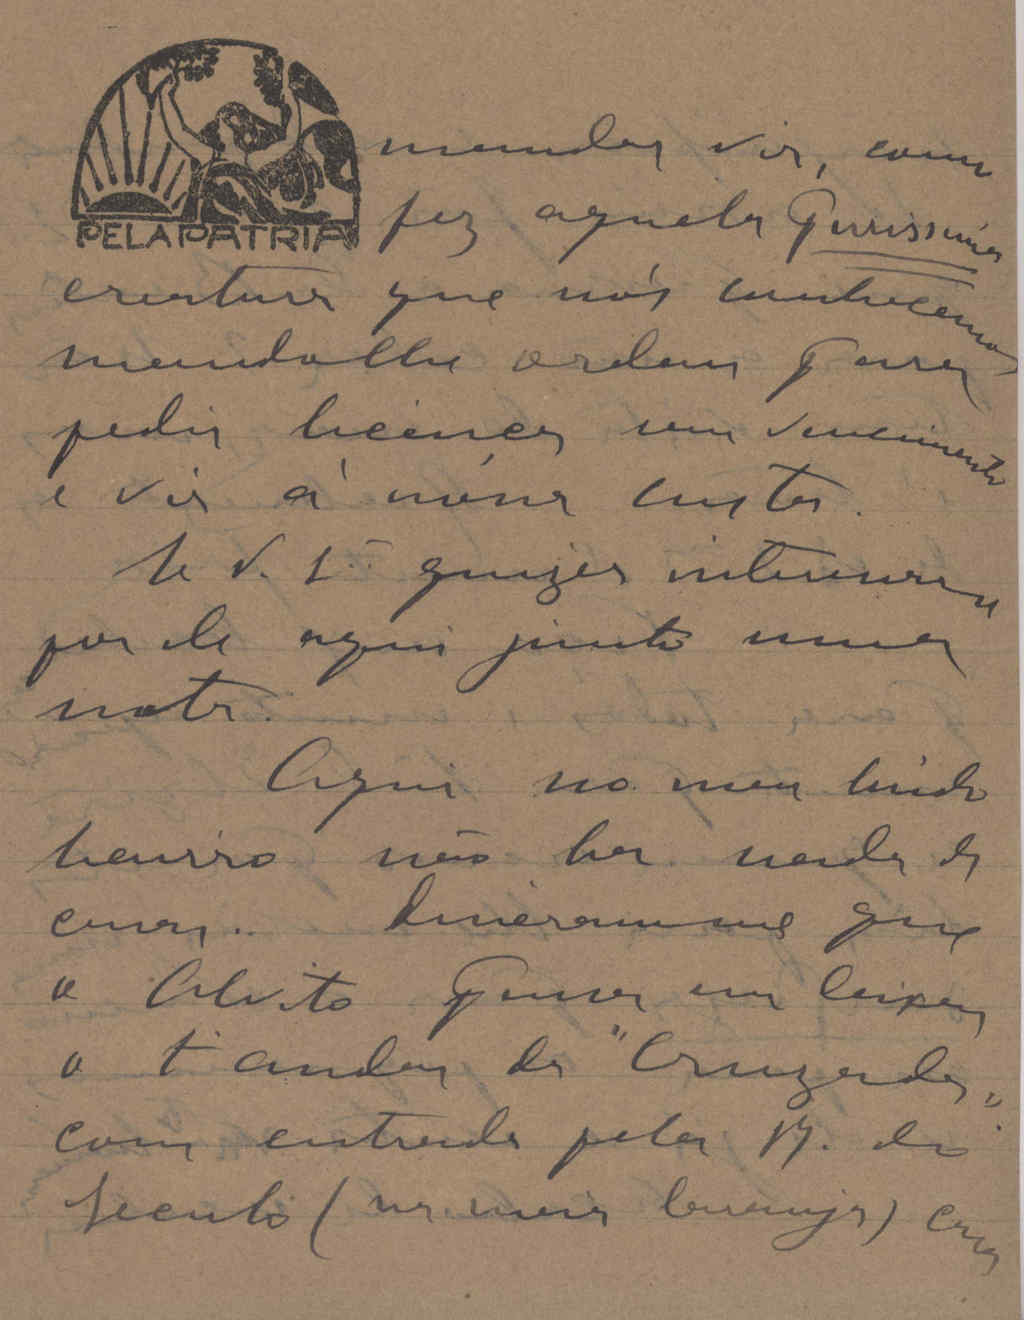 PELA PATRIA
mandar vir, como
fez aquela Purissima
creatura que nós conhecemos
manda lhe ordem para
pedir licença sem vencimento
e vir á nóssa custa.
Se V. S.ª quizer interessar
por ele aqui junto uma
nota.
Aqui no meu lindo
bairro não ha nada de
casas.. Disseram-me que
o Alvito pensa em deixar
o 1º andar da "Cruzada"
com entrada pela R. do
Seculo (na meia laranja) casa